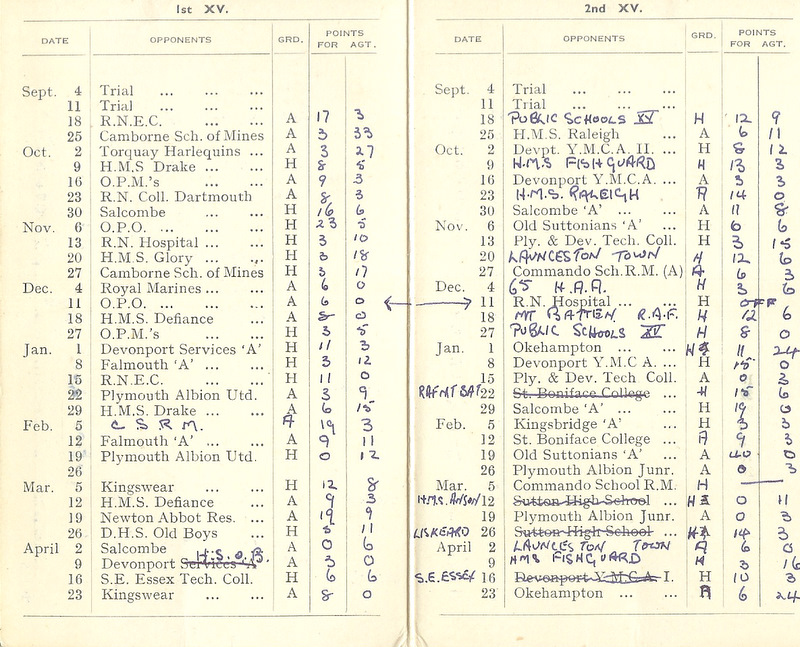 1st XV.
DATE OPPONENTS GRD. POINTS FOR AGT.
Sept. 4 Trial ... ... ...
11 Trial ... ... ...
18 R.N.E.C. ... ... A 17 3
25 Camborne Sch. of Mines A 3 33
Oct. 2 Torquay Harlequins ... A 3 27
9 H.M.S Drake ... ... H 8 5
16 O.P.M.'s ... ... A 9 3
23 R.N. Coll. Dartmouth A 8 3
30 Salcombe ... ... H 16 6
Nov. 6 O.P.O. ... ... ... H 23 5
13 R.N. Hospital ... ... H 3 10
20 H.M.S. Glory ... ... H 3 18
27 Camborne Sch. of Mines H 3 17
Dec. 4 Royal Marines ... ... A 6 0
11 O.P.O. ... ... ... A 6 0
18 H.M.S. Defiance ... A 8 0
27 O.P.M.'s ... ... H 3 5
Jan. 1 Devonport Services 'A' H 11 3
8 Falmouth 'A' ... ... H 3 12
15 R.N.E.C. ... ... H 11 0
22 Plymouth Albion Utd. A 3 9
29 H.M.S. Drake ... ... A 6 15
Feb. 5 C S R M. A 19 3
12 Falmouth 'A' ... ... A 9 11
19 Plymouth Albion Utd. H 0 12
26
Mar. 5 Kingswear ... ... H 12 8
12 H.M.S. Defiance ... A 9 3
19 Newton Abbot Res. ... A 19 9
26 D.H.S. Old Boys ... H 3 11
April 2 Salcombe ... ... A 0 6
H.S.O.B.
9 Devonport Services 'A' A 3 0
16 S.E. Essex Tech. Coll. H 6 6
23 Kingswear ... ... A 8 0
2nd XV.
DATE OPPONENTS GRD. POINTS FOR AGT.
Sept. 4 Trial ... ... ...
11 Trial ... ... ...
18 PUBLIC SCHOOLS XV H 12 9
25 H.M.S. Raleigh ... A 6 11
Oct. 2 Devpt. Y.M.C.A. II. ... H 8 12
9 H.M.S FISHGUARD H 13 3
16 Devonport Y.M.C.A. ... A 3 3
23 H.M.S. RALEIGH A 14 0
30 Salcombe 'A' ... ... A 11 8
Nov. 6 Old Suttonians 'A' ... H 6 6
13 Ply. & Dev. Tech. Coll. H 3 15
20 LAUNCESTON TOWN H 12 6
27 Commando Sch.R.M. (A) A 6 3
Dec. 4 65 H.A.A. H 3 6
11 R.N. Hospital ... ... H OFF
18 MT BATTEN R.A.F. H 12 6
27 PUBLIC SCHOOLS XV H 8 0
Jan. 1 Okehampton ... ... H 11 24
8 Devonport Y.M C A. ... H 15 0
15 Ply. & Dev. Tech Coll. A 0 3
RAF MT BAT 22 St. Boniface College ... H 15 6
29 Salcombe 'A' ... ... H 19 0
Feb. 5 Kingsbridge 'A' ... H 3 3
12 St. Boniface College ... A 9 3
19 Old Suttonians 'A' ... A 40 0
26 Plymouth Albion Junr. A 0 3
Mar. 5 Commando School R.M. H
H.M.S. ANSON 12 Sutton High School ... H 0 11
19 Plymouth Albion Junr. A 0 3
LISKEARD 26 Sutton High School ... H 14 3
April 2 LAUNCESTON TOWN A 6 0
9 HMS FISHGUARD H 3 16
S.E. ESSEX 16 Devonport Y.M.C.A. I. H 10 3
23 Okehampton ... ... A 6 24